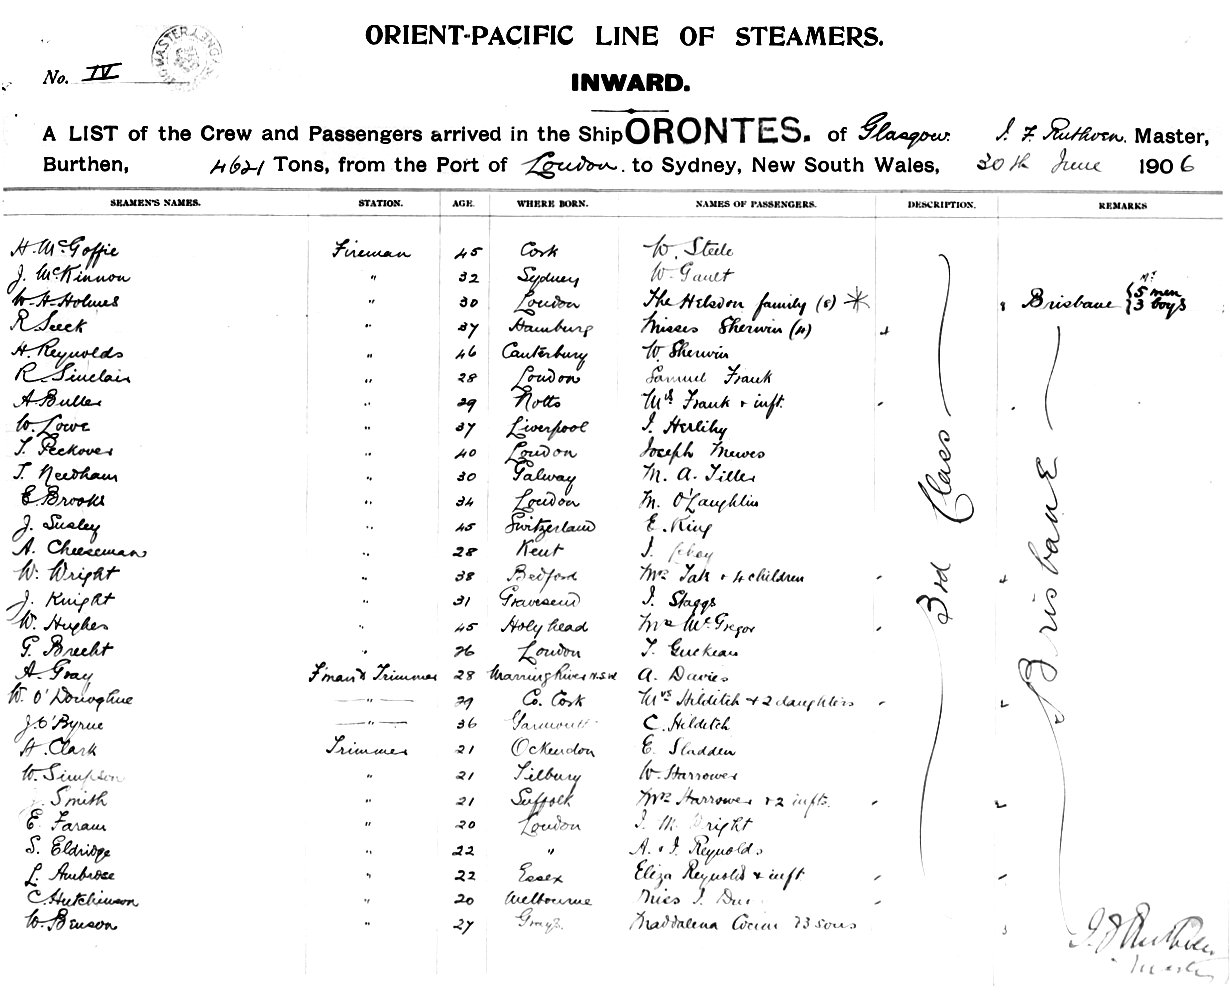 ORIENT-PACIFIC LINE OF STEAMERS.
No. IV
INWARD.
A LIST of the Crew and Passengers arrived in the Ship ORONTES. of Glasgow. J. F. Ruthven. Master,
Burthen, 4621 Tons, from the Port of London. to Sydney, New South Wales, 30th June 1906
SEAMEN'S NAMES. STATION. AGE. WHERE BORN. NAMES OF PASSENGERS. DESCRIPTION. REMARKS
H. McGoffie Fireman 45 Cork W. Steele
J. McKinnon " 32 Sydney W. Gault
W. H. Holmes " 30 London The Helsdon family (8) * Brisbane {5 men
R Seeck " 37 Hamburg Misses Sherwin (4) {3 boys
H. Reynolds " 46 Canterbury W. Sherwin
R. Sinclair " 28 London Samuel Frank
A Butler " 29 Notts Mrs Frank + inft.
W. Lowe " 37 Liverpool J. Herlihy
T. Peckover " 40 London Joseph Mewes
T. Needham " 30 Galway M. A. Tiller
E. Brooks " 34 London M. O'Laughlin
J. Susley " 45 Switzerland E. King
A. Cheeseman " 28 Kent J.
W. Wright " 38 Bedford Mrs Tak + 4 children
J. Knight " 31 Gravesend J. Staggs
W. Hughes " 45 Holyhead Mrs McGregor
G. Brecht " 26 London T. Guckeau
A. Gray F'man & Trimmer 28 Manning River N.S.W A. Davies
W. O'Donoghue " 29 Co. Cork Mrs Hilditch + 2 daughters
J. O'Byrne " 36 Garmouth C. Hilditch
H. Clark Trimmer 21 Ockendon E. Sladden
W. Simpson " 21 Tilbury W. Harrower
J. Smith " 21 Suffolk Mrs Harrower + 2 infts.
E. Faram " 20 London J. M. Bright
S. Eldridge " 22 " A. + J. Reynolds
L. Ambrose " 22 Essex Eliza Reynolds + inft
C. Hutchinson " 20 Melbourne Miss J.
W. Benson " 27 Grays. Maddalena 3 sons
3rd Class
Brisbane
J. F. Ruthven
Master